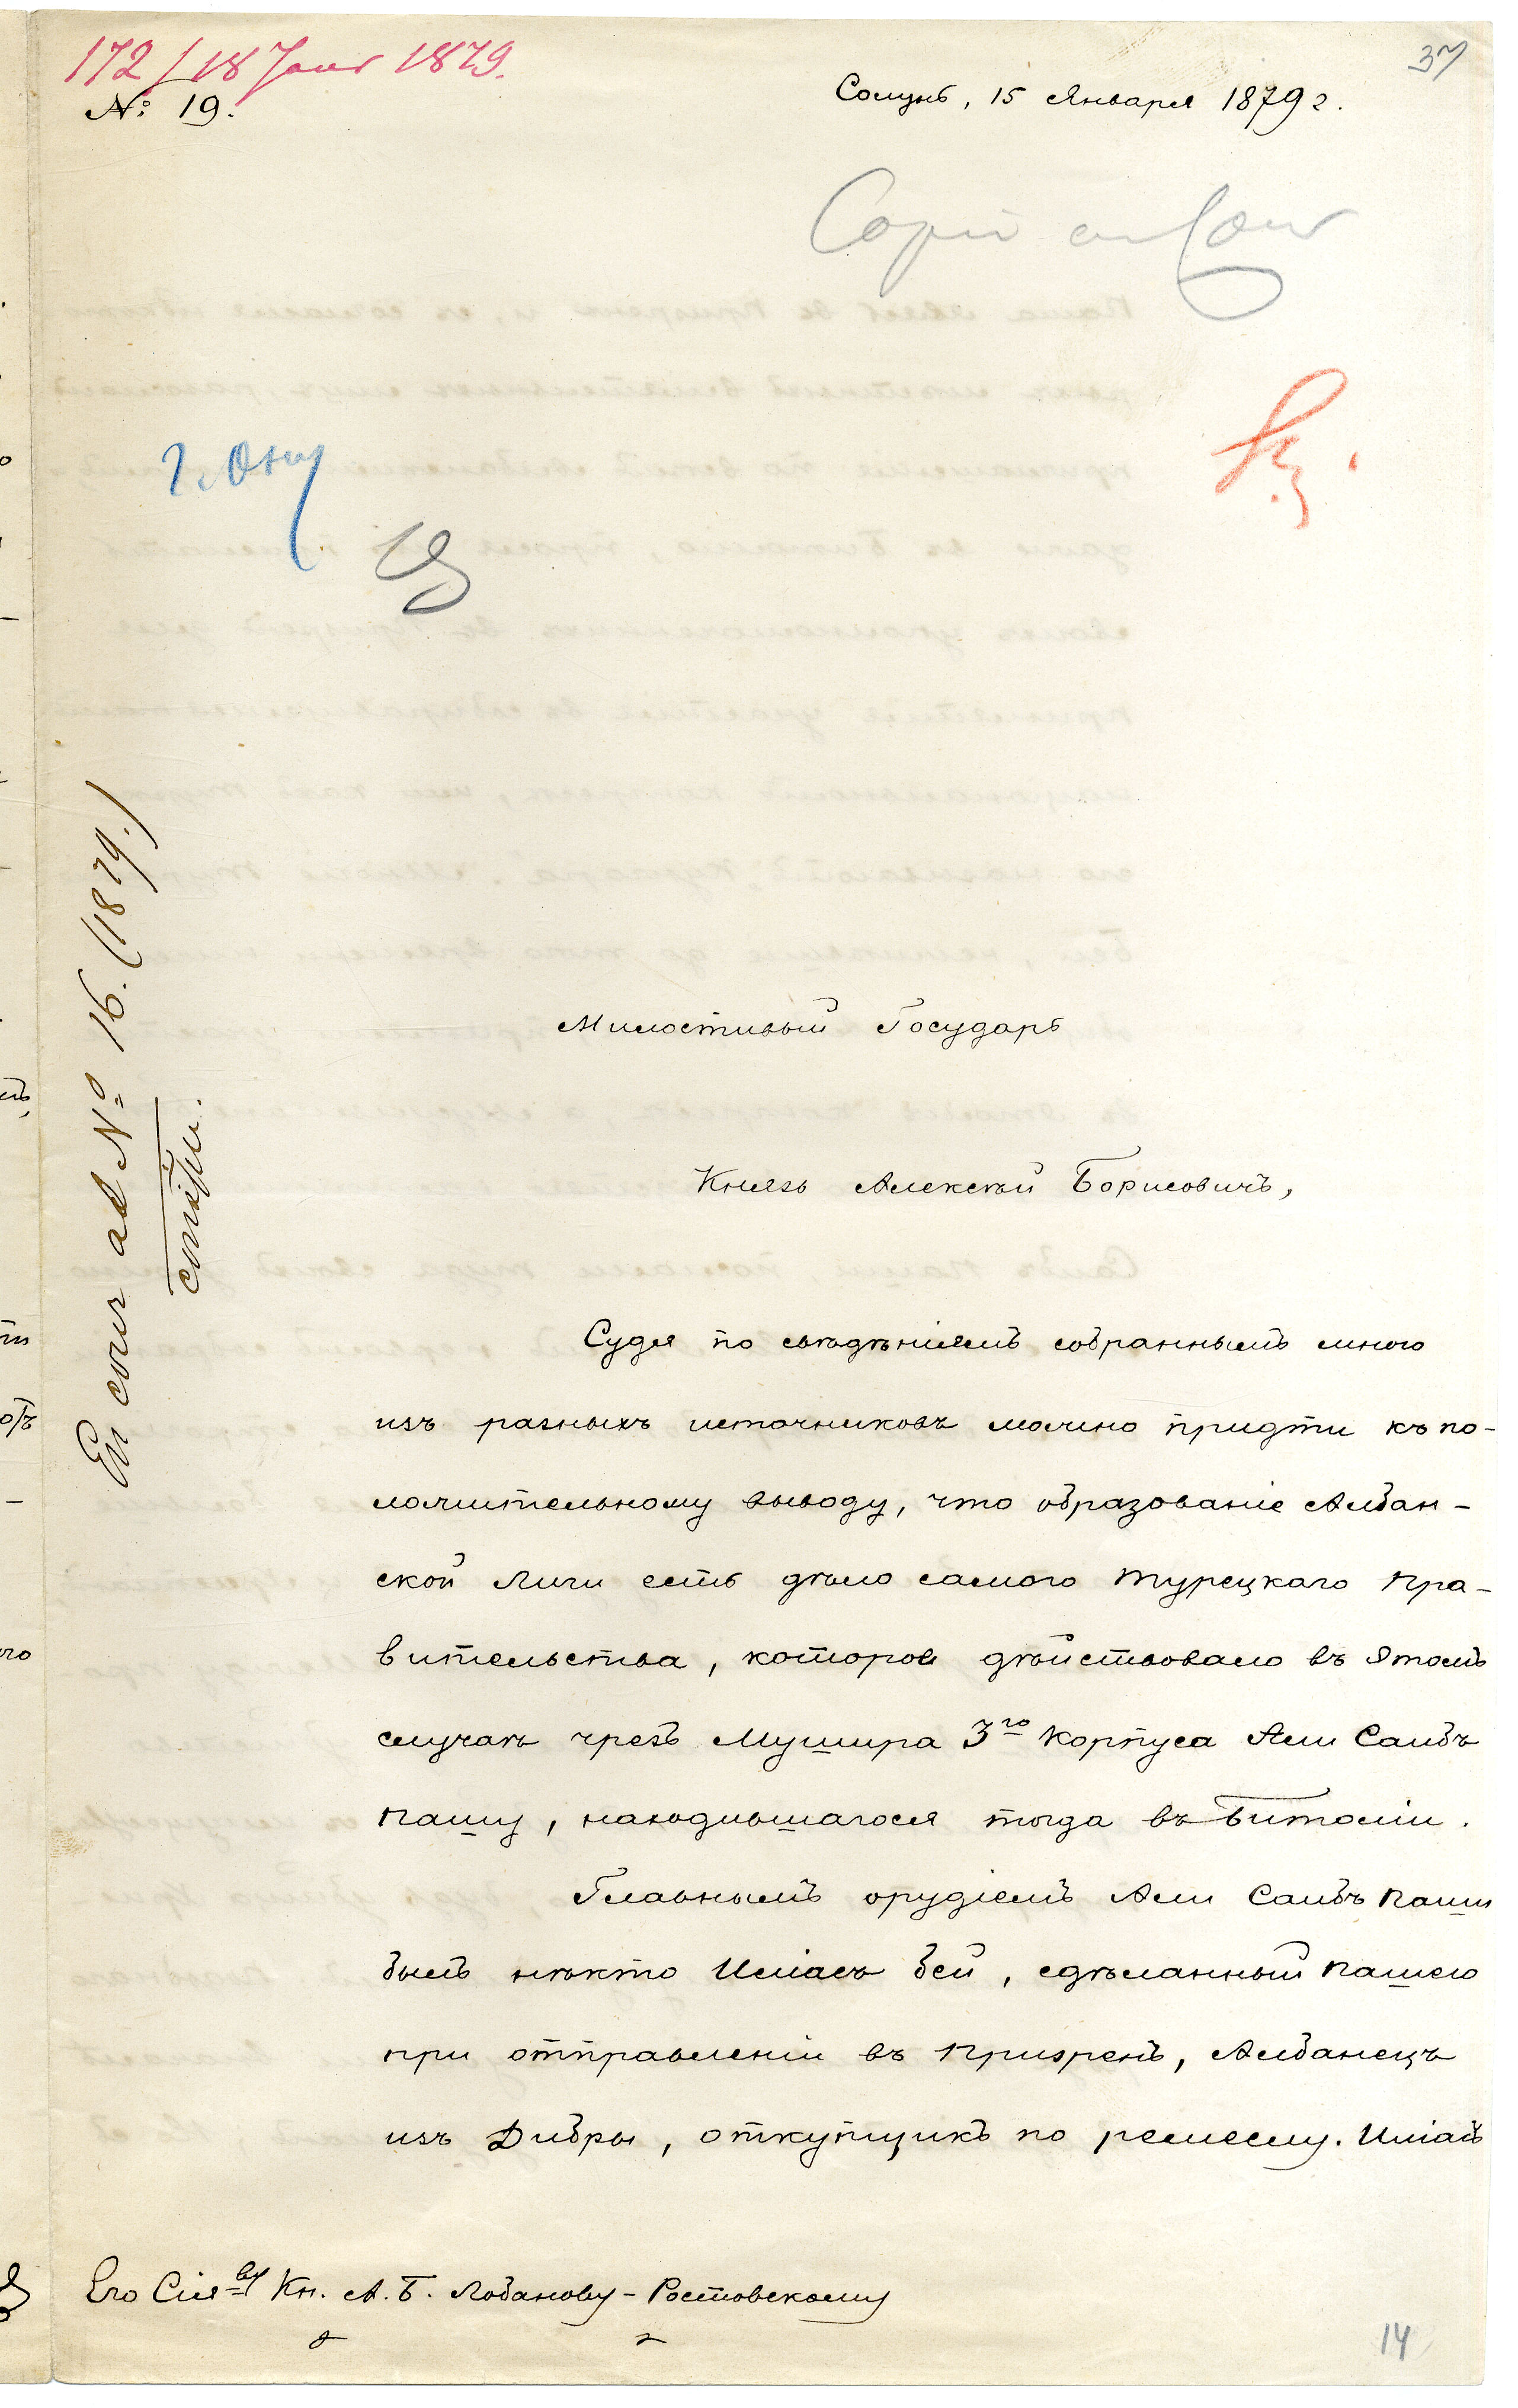 172 / 18 Janv 1879.
37
№ 19.
Солунь, 15 Января 1879 г.
Милостивый Государь
Князь Алексѣй Борисовичъ,
Судя по свѣдѣніямъ собраннымъ мною
изъ разныхъ источниковъ можно придти къ по-
ложительному выводу, что образованіе Албан-
ской Лиги есть дѣло самого Турецкаго Пра-
вительства, которое дѣйствовало въ этомъ
случаѣ чрезъ Мушира 3го Корпуса Али Саибъ
Пашу, находившагося тогда въ Битоліи.
Главнымъ орудіемъ Али Саибъ Паши
былъ нѣкто Иліасъ бей, сдѣланный Пашею
при отправленіи въ Призренъ, Албанецъ
изъ Дибры, откупщикъ по ремеслу. Иліасъ
Его Сія-ву Кн. А. Б. Лобанову-Ростовскому
14
№ 16. (1879.)